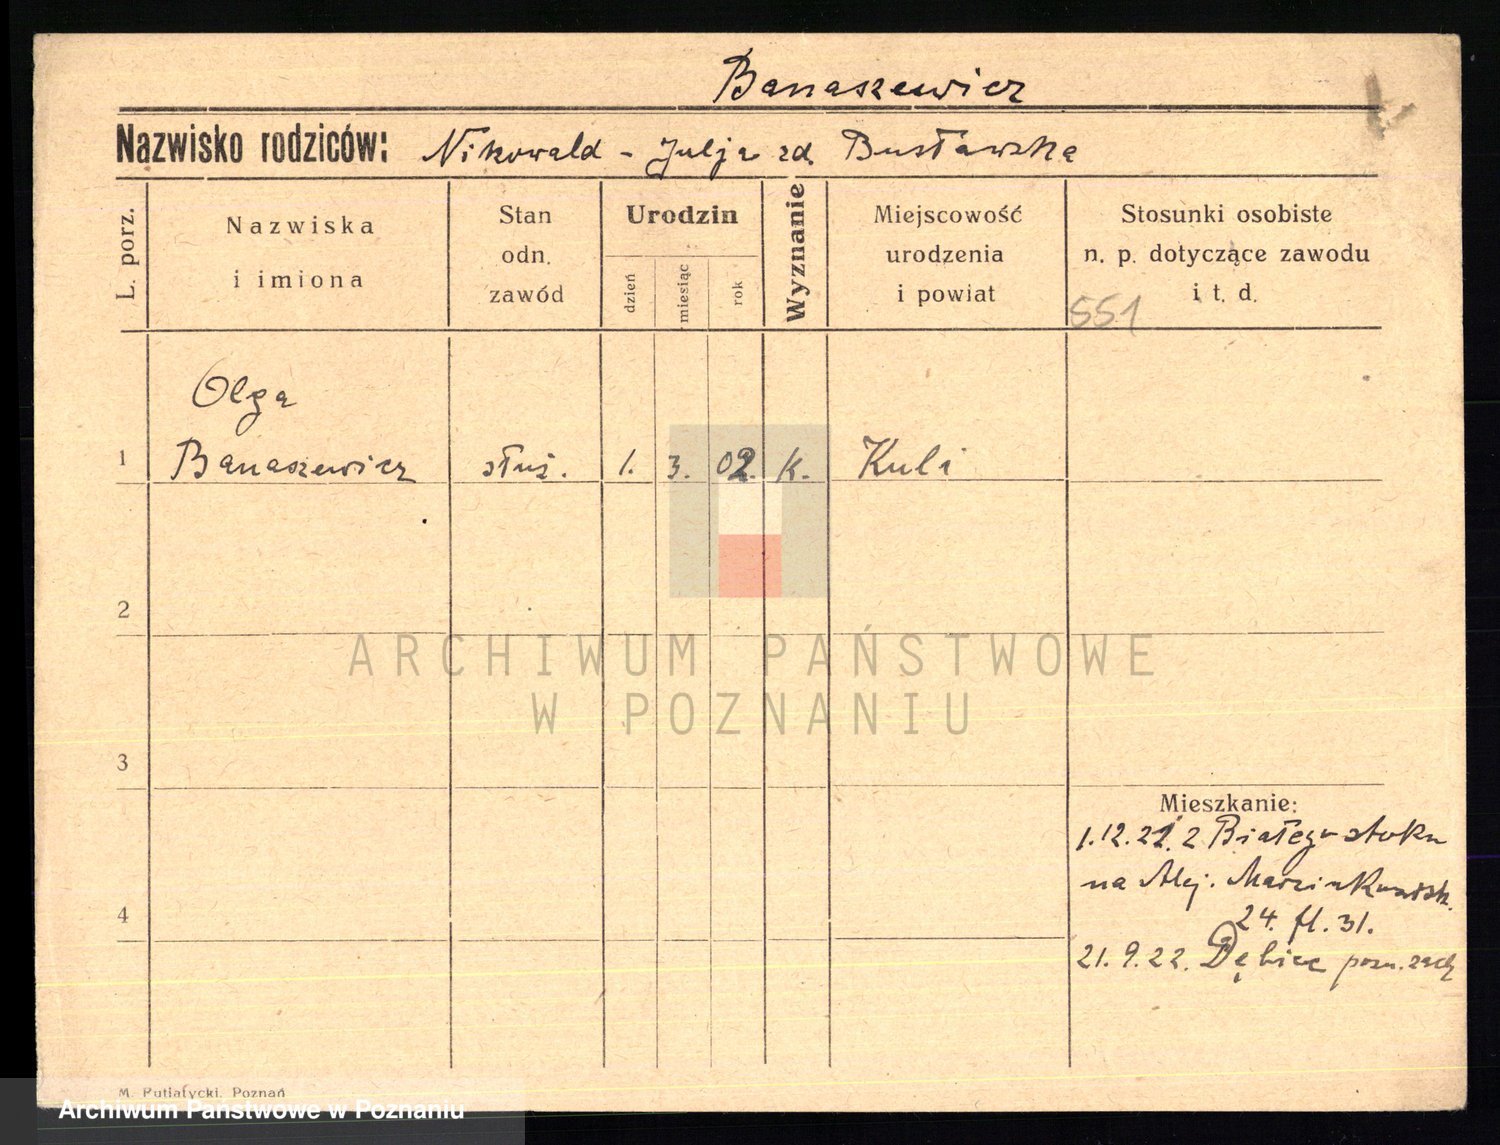 Banaszewicz
Nazwisko rodziców: Nikowald - Julja zd. Busławska
L. porz.
Nazwiska
i imiona
Stan
odn.
zawód
Urodzin
dzień
miesiąc
rok
Wyznanie
Miejscowość
urodzenia
i powiat
Stosunki osobiste
n. p. dotyczące zawodu
i t. d.
551
Olga
1 Banaszewicz służ. 1. 3. 02. K. Kuli
2
ARCHIWUM PAŃSTWOWE
W POZNANIU
3
Mieszkanie:
1.12.21. z Białegostoku
na Alej. Marcinkowsk.
4
24. fl. 31.
21.9.22. Dębiec pozn. zach
M. Putiatycki, Poznań
Archiwum Państwowe w Poznaniu